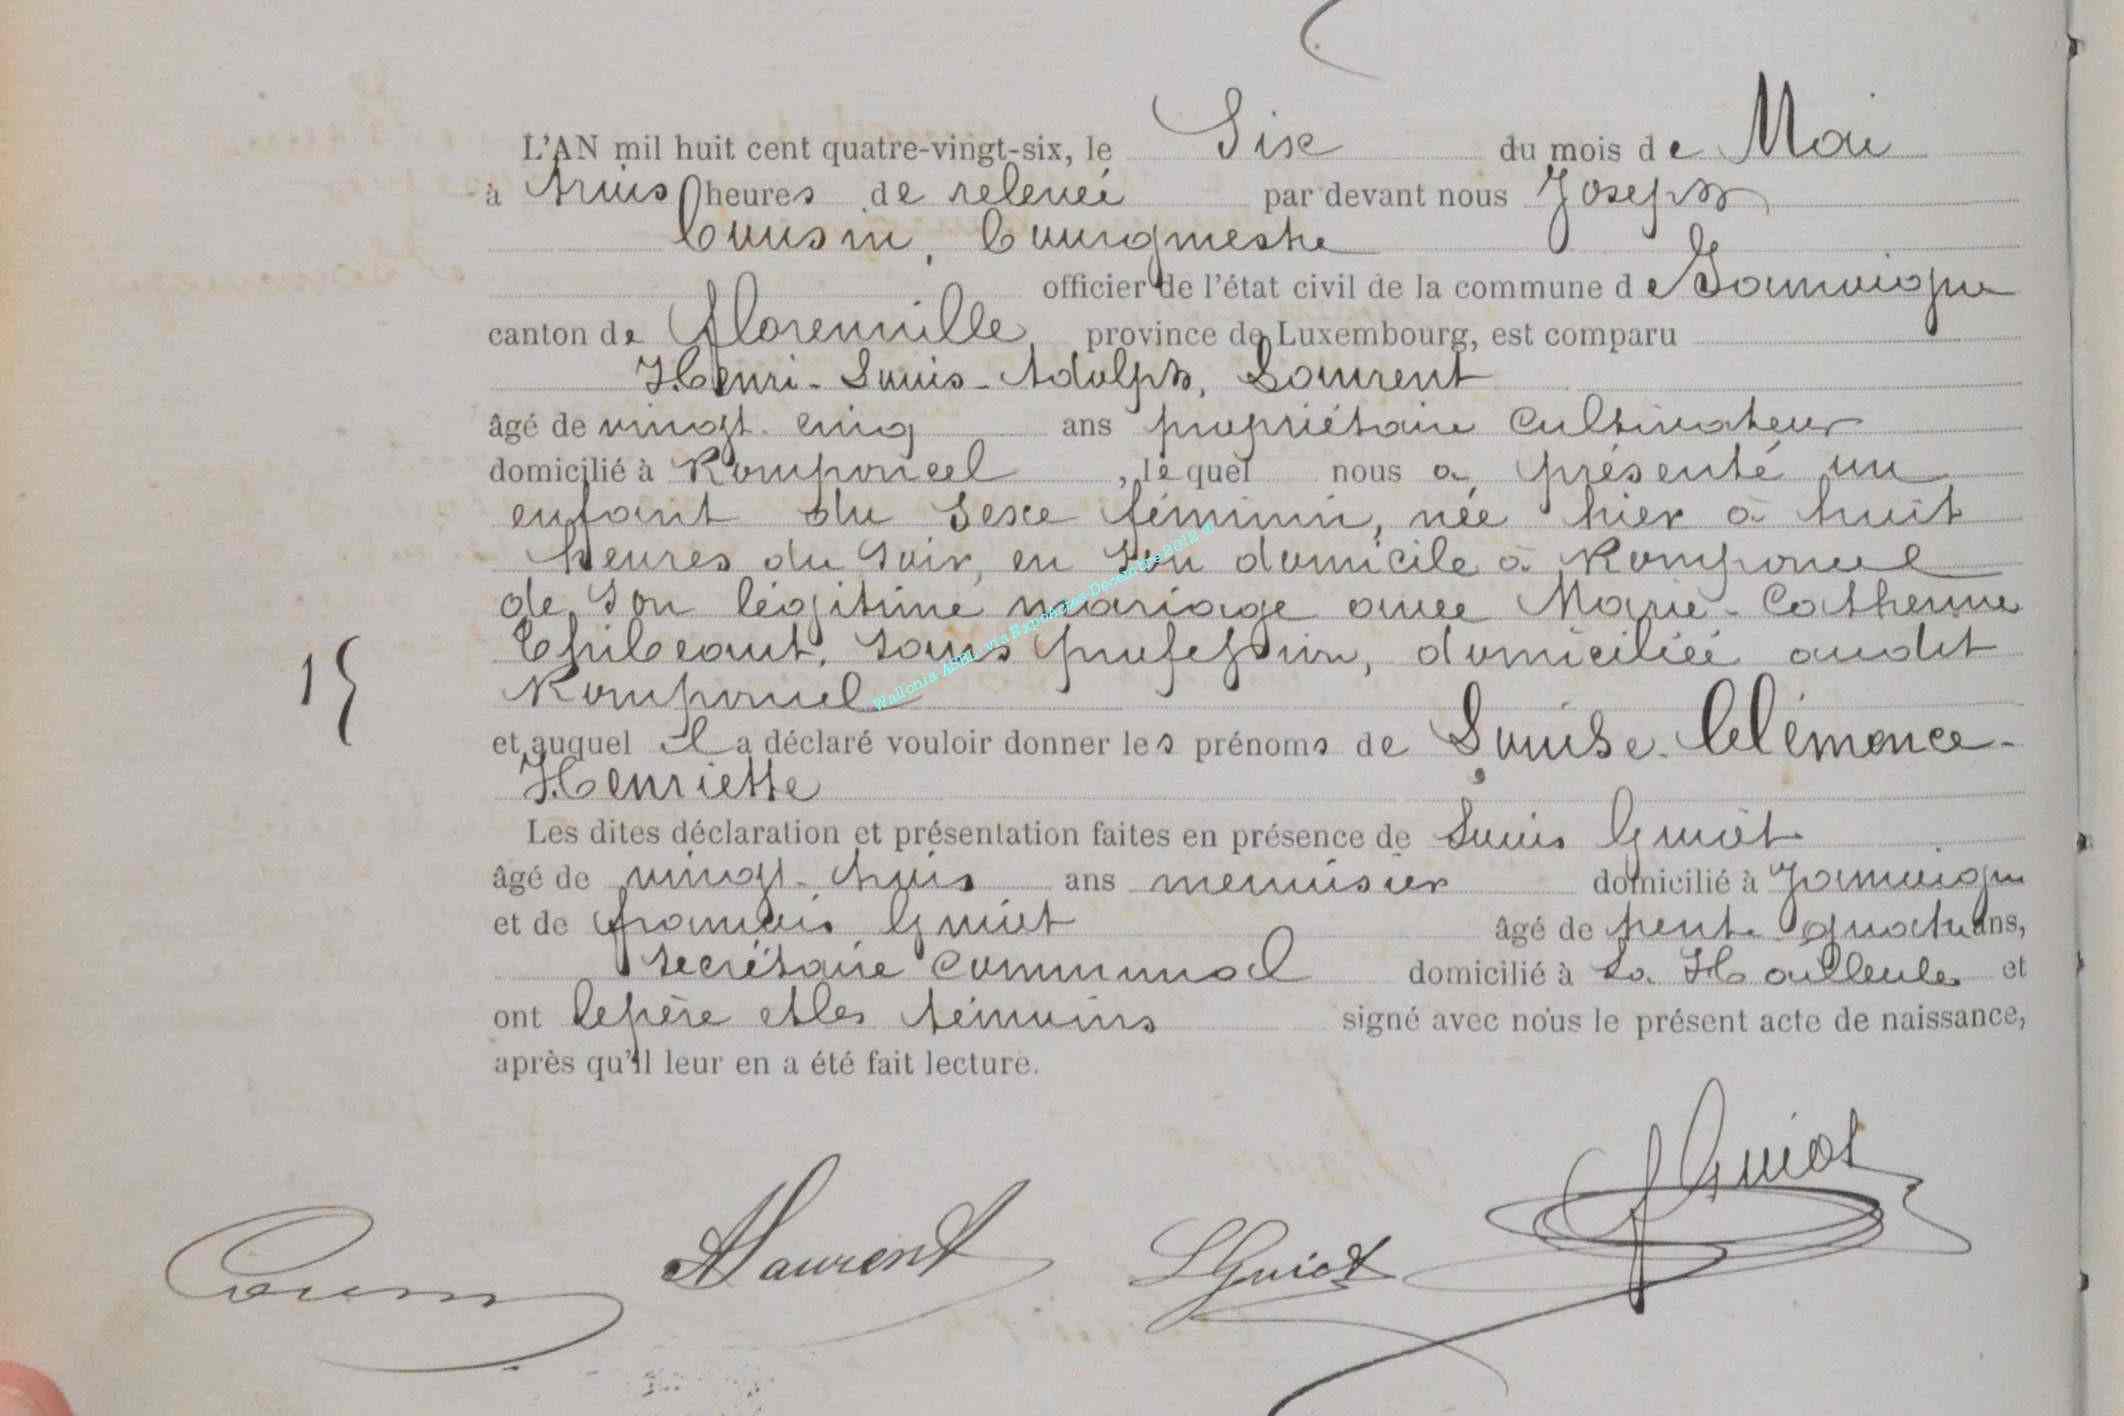 L'AN mil huit cent quatre-vingt-six, le Six du mois de Mai
à trois heures de relevée par devant nous Joseph
Cousin, Bourgmestre
officier de l'état civil de la commune de Jamoigne
canton de Florenville, province de Luxembourg, est comparu
Henri-Louis-Adolph, Laurent
âgé de vingt-cinq ans propriétaire cultivateur
domicilié à Romponcel, lequel nous a présenté un
enfant du sexe féminin, née hier à huit
heures du soir, en son domicile à Romponcel
de son légitime mariage avec Marie-Catherine
Thibeaut, sans profession, domiciliée audit
Romponcel
15
et auquel il a déclaré vouloir donner les prénoms de Louise-Clémence-
Henriette
Les dites déclaration et présentation faites en présence de Louis Guiot
âgé de vingt-trois ans menuisier domicilié à Jamoigne
et de François Guiot âgé de trente-quatre ans,
secrétaire communal domicilié à La Hailleule et
ont le père et les témoins signé avec nous le présent acte de naissance,
après qu'il leur en a été fait lecture.
Cousin ALaurent LGuiot FGuiot
Wallonia ASBL via ExpoActes-Decentre